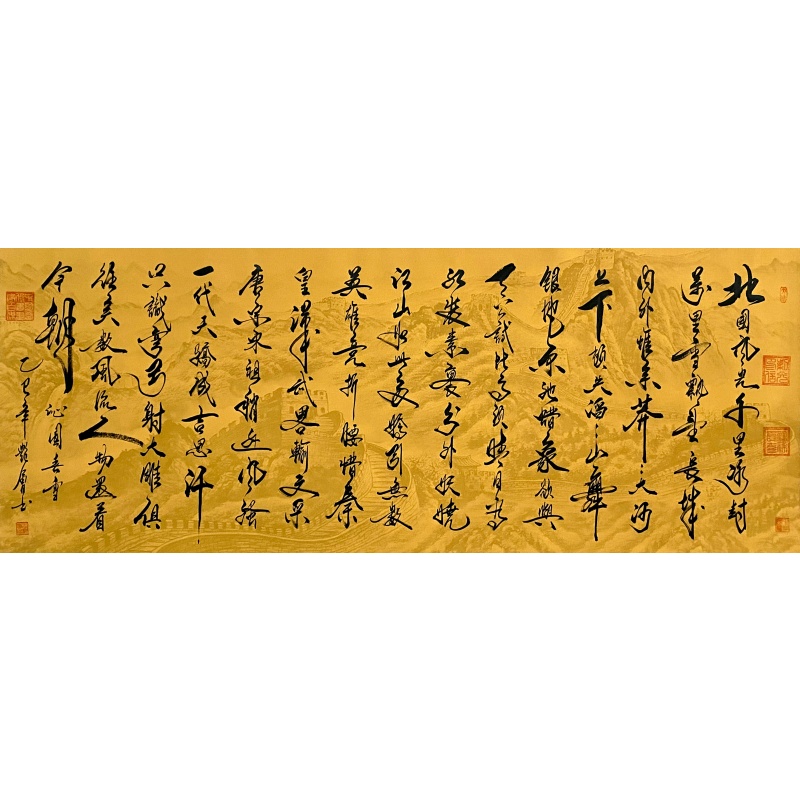 北國风光千里冰封
万里雪飘望長城
内外惟余莽〻大河
上下顿失滔〻山舞
銀蛇原驰蜡象欲與
天公試比高须晴日看
红装素裹分外妖娆
江山如此多嬌引無数
英雄竞折腰惜秦
皇漢武略輸文采
唐宗宋祖稍逊风骚
一代天驕成吉思汗
只識彎弓射大雕俱
往矣数風流人物還看
今朝 沁園春雪
乙巳年 书